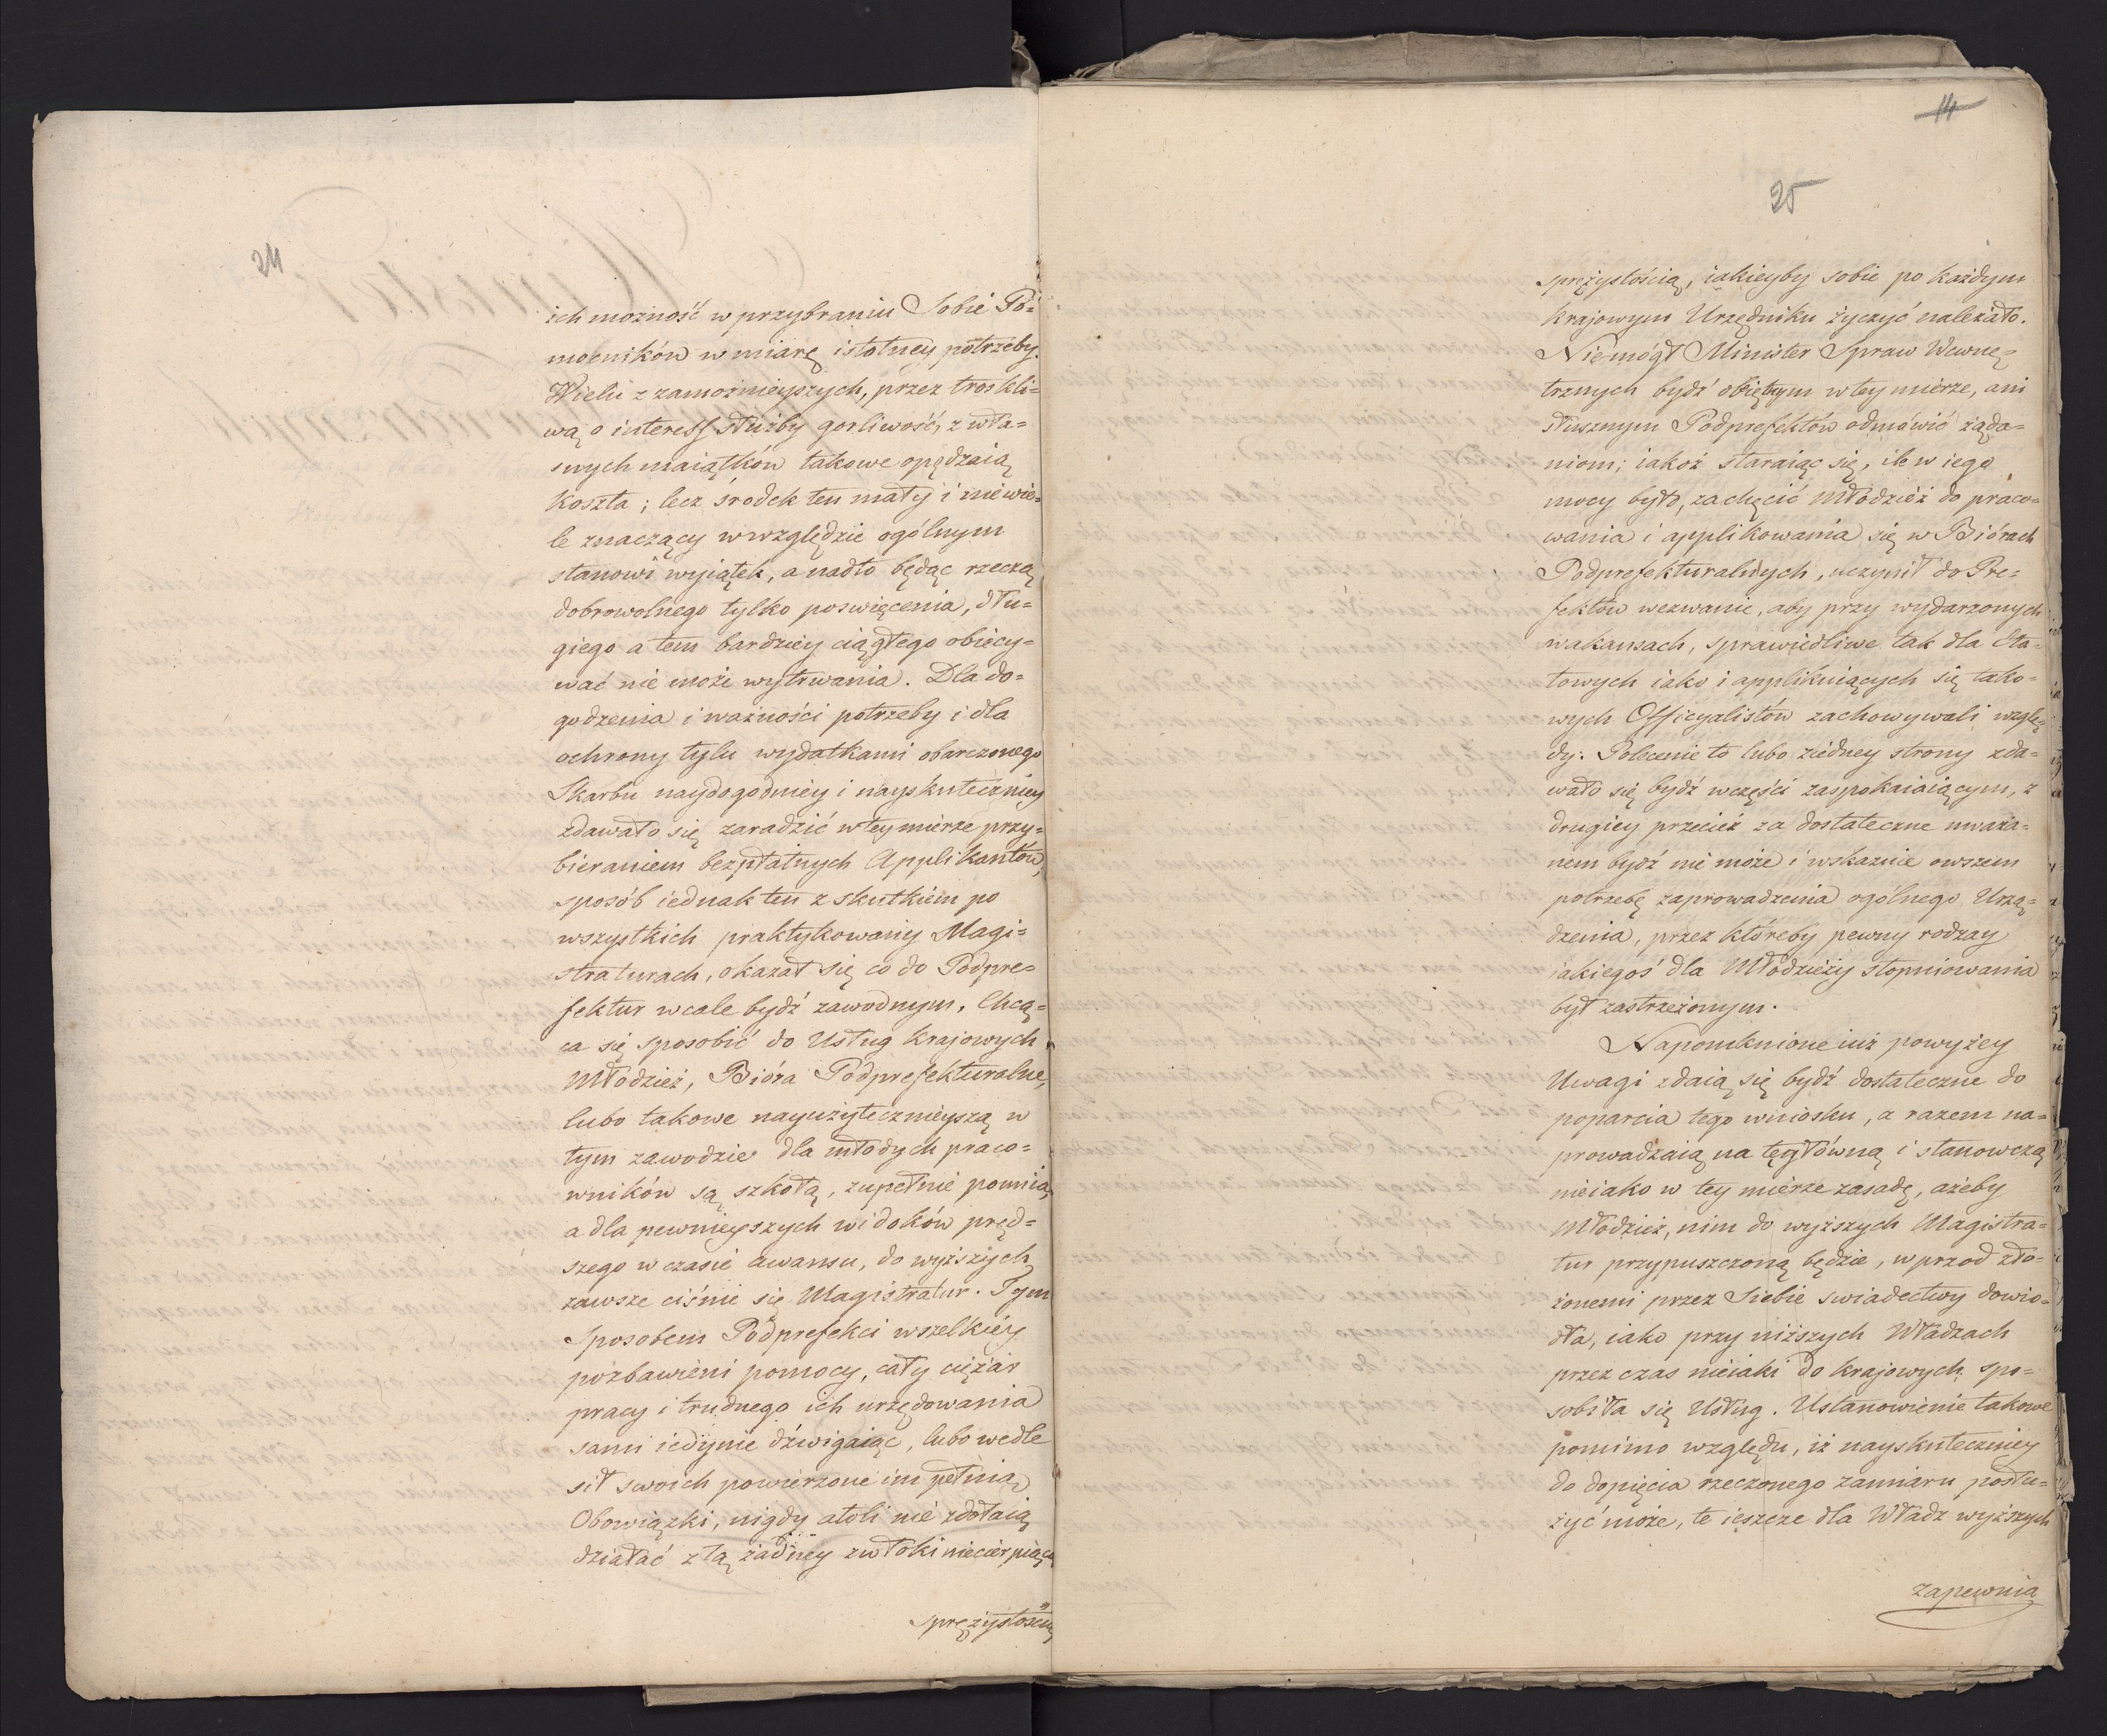 24
ich możność w przybraniu Sobie Po-
mocników w miarę istotney potrzeby.
Wielu z zamożnieyszych, przez troskli-
wą o interess służby gorliwość, z wła-
snych maiątków takowe opędzaią
koszta; lecz środek ten mały i niewie-
le znaczący w względzie ogólnym
stanowi wyiątek, a nadto będąc rzeczą
dobrowolnego tylko poswięcenia, dłu-
giego a tem bardziey ciągłego obiecy-
wać nie może wytrwania. Dla do-
godzenia i ważności potrzeby i dla
ochrony tylu wydatkami obarczonego
Skarbu naydogodniey i nayskuteczniey
zdawało się zaradzić w tey mierze przy-
bieraniem bezpłatnych Applikantów,
sposób iednak ten z skutkiem po
wszystkich praktykowany Magi-
straturach, okazał się co do Podpre-
fektur wcale bydź zawodnym. Chcą-
ca się sposobić do Usług krajowych
Młodzież, Bióra Podprefekturalne,
lubo takowe nayużytecznieyszą w
tym zawodzie dla młodych praco-
wników są szkołą, zupełnie pomiia,
a dla pewnieyszych widoków pręd-
szego w czasie awansu, do wyższych
zawsze ciśnie się Magistratur. Tym
Sposobem Podprefekci wszelkiéy
pozbawieni pomocy, cały ciężar
pracy i trudnego ich urzędowania
sami iedynie dźwigaiąc, lubo wedle
sił swoich powierzone im pełnią
Obowiązki, nigdy atoli nie zdołaią
działać z tą żadney zwłoki niecierpiącą
sprężystością
14
25
sprężystością, iakieyby sobie po każdym
krajowym Urzędniku życzyć należało.
Niemógł Minister Spraw Wewnę-
trznych bydź obiętnym w tey mierze, ani
słusznym Podprefektów odmówić żąda-
niom; iakoż staraiąc się, ile w iego
mocy było, zachęcić Młodzież do praco-
wania i applikowania się w Biórach
Podprefekturalnych, uczynił do Pre-
fektów wezwanie, aby przy wydarzonych
wakansach, sprawiedliwe tak dla Eta-
towych iako i applikuiących się tako-
wych Officyalistów zachowywali wzglę-
dy. Polecenie to lubo ziedney strony zda-
wało się bydź wczęści zaspokaiaiącym, z
drugiey przecież za dostateczne uważa-
nem bydź nie może i wskazuie owszem
potrzebę zaprowadzenia ogólnego Urzą-
dzenia, przez któreby pewny rodzay
iakiegoś dla Młodzieży stopniowania
był zastrzeżonym.
Napomknione iuż powyżey
Uwagi zdaią się bydź dostateczne do
poparcia tego wniosku, a razem na-
prowadzaią na tę główną i stanowczą
nieiako w tey mierze zasadę, ażeby
Młodzież, nim do wyższych Magistra-
tur przypuszczoną będzie, w przod zło-
żonemi przez Siebie swiadectwy dowio-
dła, iako przy niższych Władzach
przez czas nieiaki do krajowych spo-
sobiła się Usług. Ustanowienie takowe
pomimo względu, iż nayskuteczniey
do dopięcia rzeczonego zamiaru posłu-
żyć może, te ieszcze dla Władz wyższych
zapewnia